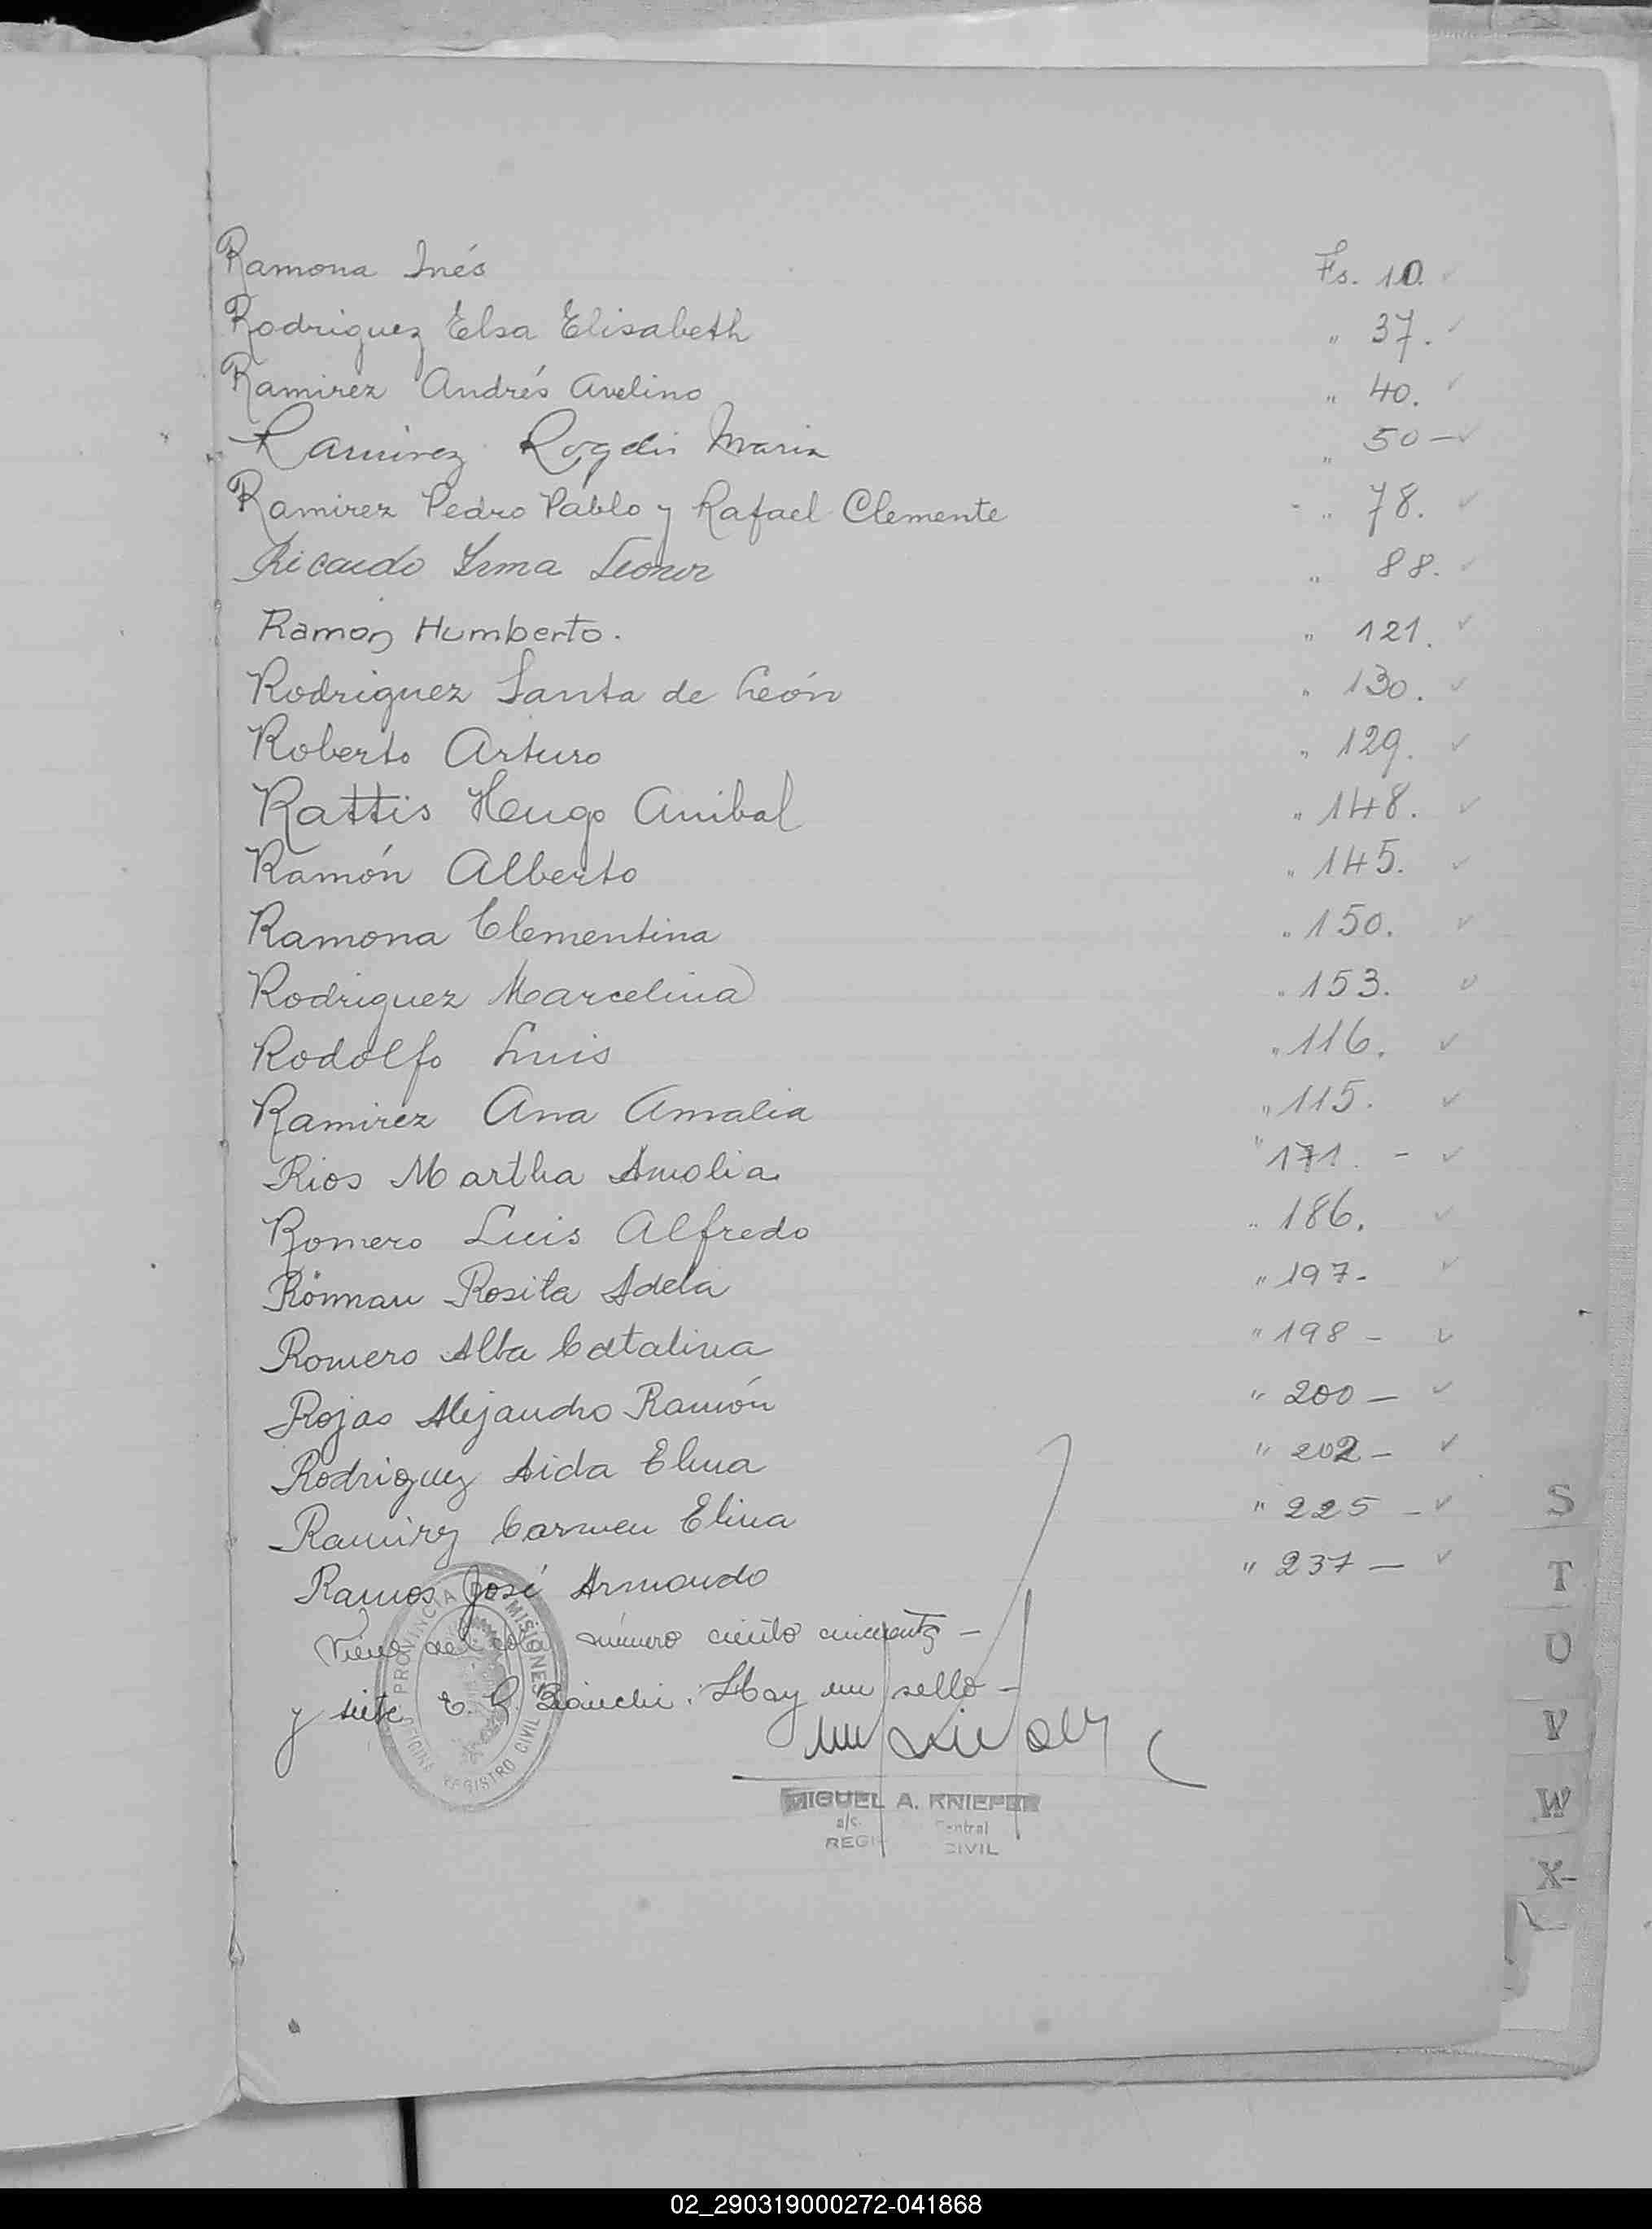 Ramona Inés Fs. 10. ✓
Rodriguez Elsa Elisabeth " 37. ✓
Ramirez Andrés Avelino " 40. ✓
Ramirez Rogelio Maria " 50 - ✓
Ramirez Pedro Pablo y Rafael Clemente - " 78. ✓
Ricardo Irma Leonor " 88. ✓
Ramón Humberto. " 121. ✓
Rodriguez Santa de León " 130. ✓
Roberto Arturo " 129. ✓
Rattis Hugo Anibal " 148. ✓
Ramón Alberto " 145. ✓
Ramona Clementina " 150. ✓
Rodriguez Marcelina " 153. ✓
Rodolfo Luis " 116. ✓
Ramirez Ana Amalia " 115. ✓
Rios Martha Amolia " 171. - ✓
Romero Luis Alfredo " 186. ✓
Römman Rosita Adela " 197- ✓
Romero Alba Catalina " 198 - ✓
Rojas Alejandro Ramón " 200 - ✓
Rodriguez Aida Elena " 202 - ✓
Ramirez Carmen Elina " 225 - ✓
Ramos José Armando " 237 - ✓
Viene del número ciento cincuenta -
y siete E. G. Bianchi. Hay un sello -
PROVINCIA DE MISIONES
OFICINA REGISTRO CIVIL
MIGUEL A. KNIEPER
a/c. Central
REGI CIVIL
S
T
U
V
W
X-
02_290319000272-041868